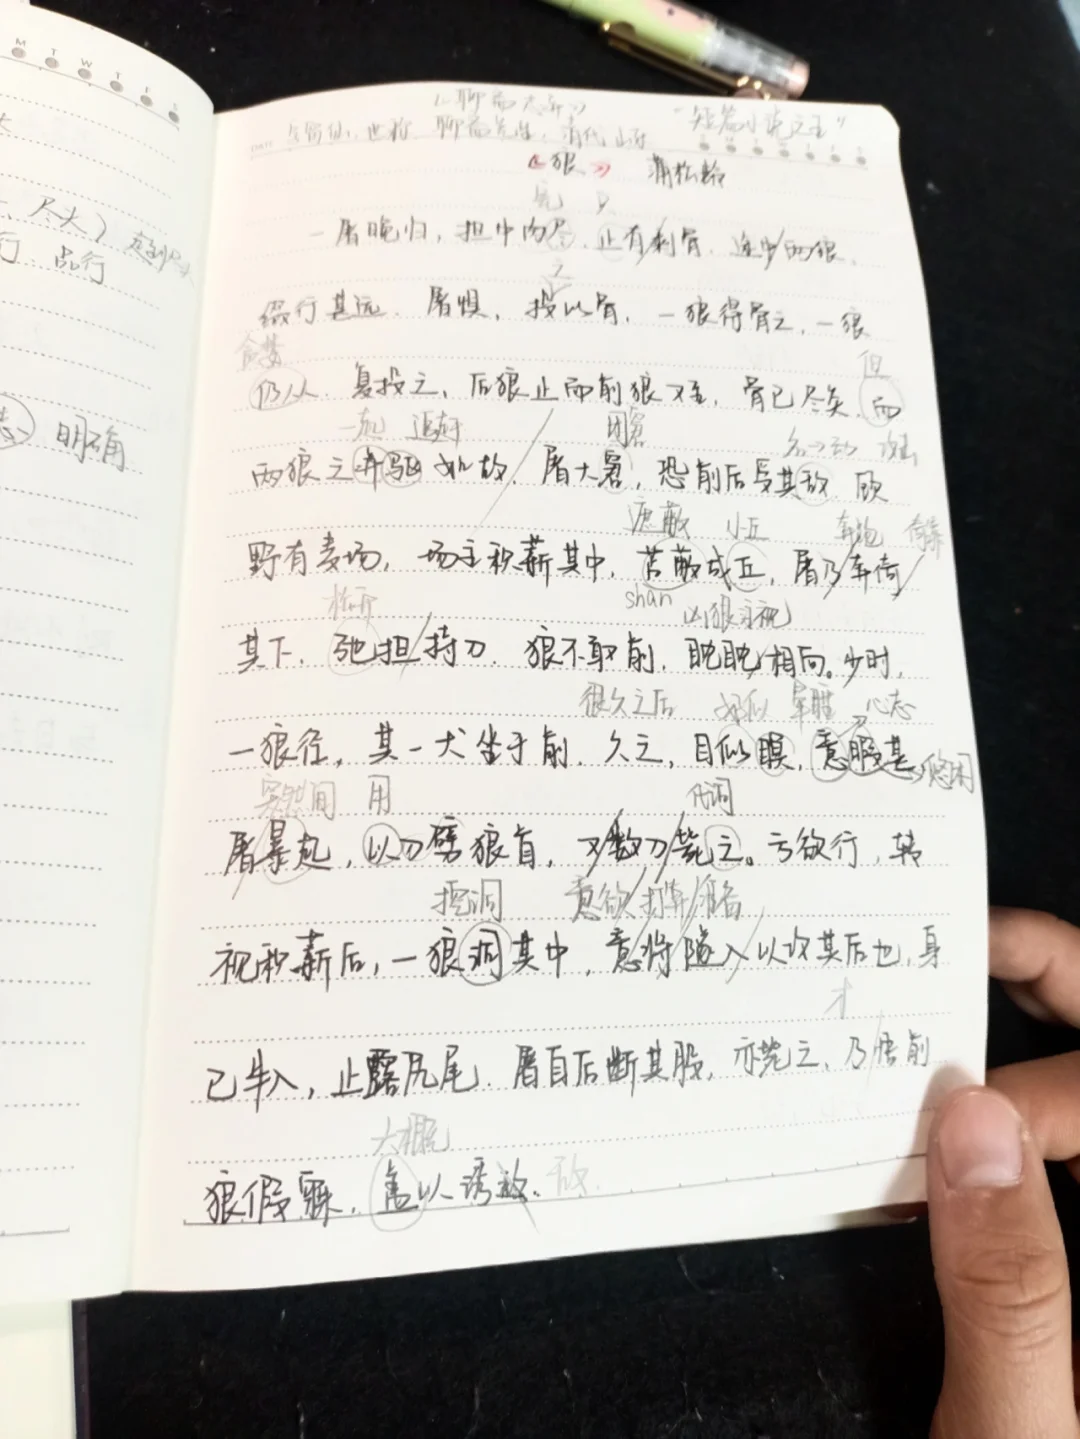 M T W T F S
《聊斋志异》
"短篇小说之王"
字留仙,世称 聊斋先生,清代
DATE
《狼》 蒲松龄
尽大)
行 品行
一屠晚归,担中肉尽,止有剩骨.途中两狼,
缀行甚远.屠惧,投以骨,一狼得骨止,一狼
贪婪
但
仍从.复投之,后狼止而前狼又至,骨已尽矣.而
一起 追赶
困窘
名→动 攻击
明确
两狼之并驱如故.屠大窘,恐前后受其敌 顾
遮蔽 小丘
奔跑 倚靠
野有麦场,场主积薪其中,苫蔽成丘,屠乃奔倚
shan
凶狠注视
其下.弛担持刀.狼不敢前,眈眈相向。少时,
很久之后 好似 心志
一狼径,其一犬坐于前.久之,目似瞑,意暇甚,
悠闲
突然间 用
屠暴起,以刀劈狼首,又数刀毙之。亏欲行,转
挖洞 意欲 打算 准备
视积薪后,一狼洞其中,意将隧入以攻其后也,身
才
已半入,止露尻尾.屠自后断其股,亦毙之,乃悟前
大概
狼假寐.盖以诱敌.
敌.